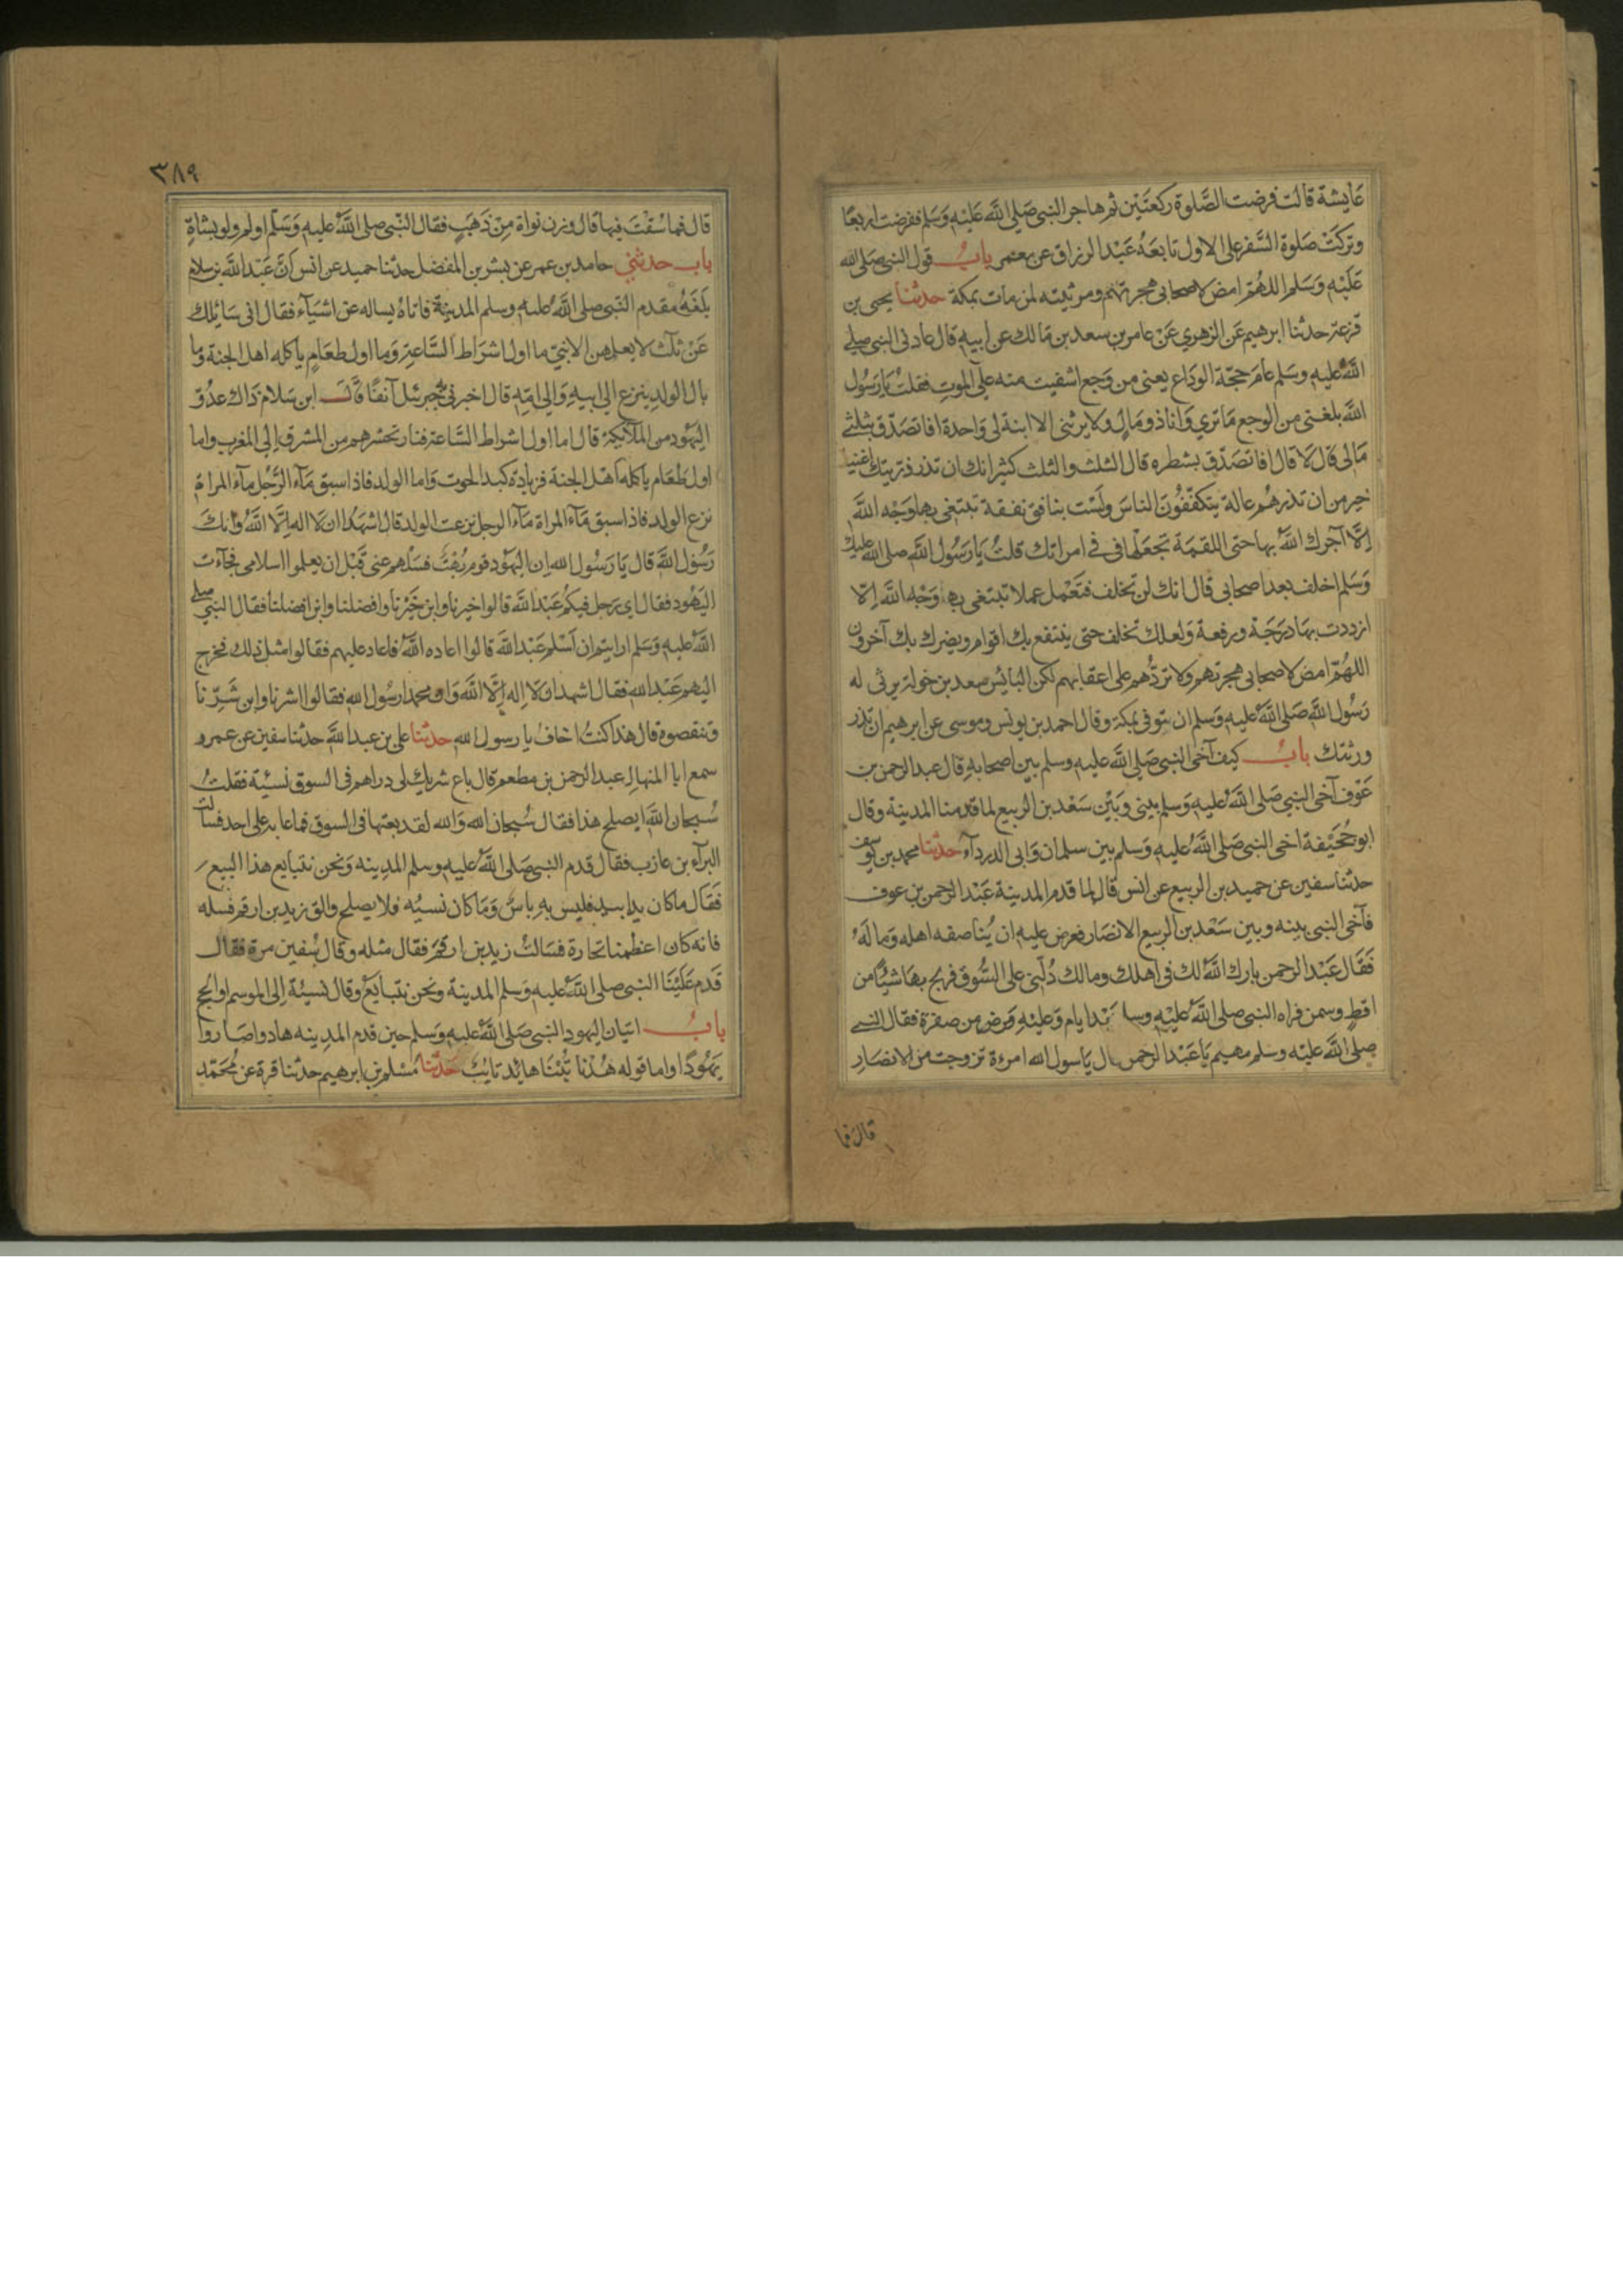 عَايشة قالت فرضت الصَّلوة ركعتَين ثم هاجر النبى صَلى الله عَليْهِ وَسَلم ففرضت اربعًا
وتركتْ صَلوة السَّفر على الاول تابعَهُ عَبْد الرزاق عن معمر بابُ قول النبى صَلى الله
عَلَيْهِ وَسَلم اللهُمَّ امض لاصحابى هجرتهم ومرثيته لمن مات بمكة حدثنا يحيى بن
قزعة حدثنا ابرهيم عَن الزهري عَنْ عامر بن سعد بن مَالك عن ابيهِ قال عادنى النبى صلى
اللهُ عليهِ وسَلم عَام حجّة الوَداع يعنى من وَجع اشفيت منه على الموتِ فقلتُ يَا رَسُول
الله بلغنى من الوجع مَا تري وَانا ذو مَالٍ ولا يرثنى الا ابنة لى وَاحدة افاتصَدّق بثلثى
مَالى قال لا قال افاتصَدّق بشطره قال الثلث والثلث كثير انك ان تذر ذريتك اغنيا
خير من ان تذرهُم عالة يتكفّفُونَ الناسَ ولَسْت بنافق نفقة تبتغى بها وَجْه اللهِ
اِلّا آجرك اللهُ بها حتى اللقمَة تجعَلها فى فى امراتك قلتُ يَا رَسُول اللهِ صلى الله عليك
وَسَلم اخلف بعد اصحابى قال انك لن تخلف فتَعْمل عملا تبتغى بها وَجْه الله اِلّا
ازددت بها دَرَجَة ورفعة وَلعلك تخلف حتى ينتفع بك اقوام ويضرك بك آخرون
اللهُمّ امض لاصحابى هجرتهم ولا تردُّهم على اعقابهم لكن البَائِس سعد بن خولة يرثى له
رَسُول الله صَلى اللهُ عليهِ وَسلم ان توفى بمكة وقال احمد بن يونس وموسى عن ابرهيم ان تذر
ورثتك بابُ كيف آخى النبى صَلى الله عليهِ وسلم بين اصحابهِ وقال عبد الرحمن بن
عَوْف آخى النبى صَلى اللهُ عليهِ وَسلم بينى وبَيْن سَعْد بن الربيع لما قدمنا المدينة وقال
ابو جُحَيْفة اخى النبى صَلى اللهُ عليهِ وَسلم بين سلمان وَابى الدرداء حدثنا محمد بن يوسف
حدثنا سفين عن حميد بن الربيع عن انس قال لما قدم المدينة عَبْد الرحمن بن عوف
فآخى النبى بينه وبين سَعْد بن الربيع الانصَار فعرض عليهِ ان يُناصفه اهله وَما لَهُ
فَقال عَبْد الرحمن بارك اللهُ لك فى اهلك ومالك دُلّنى على السُّوق فربح بها شيئًا من
اقطٍ وسمن فراه النبى صلى اللهُ عليْهِ وسا بَعْد ايام وَعليْهِ وَضر من صفرة فقال النبى
صلى الله عليْه وسلم مهيم يَا عَبْد الرحمن ال يَا سول الله امرءة تزوجت من الانصَار
قال فما
٣٨٩
قال فما سُقْتَ فيها قال وزن نواة مِنْ ذَهَبٍ فقال النّبى صلى اللهُ عليهِ وَسَلّم اولم ولو بشاةٍ
باب حدثني حامد بن عمر عن بشر بن المفضل حدثنا حميد عن انس اَنّ عَبْد الله بن سلام
بَلغَهُ مقدم النّبى صلى اللهُ عليهِ وسلم المدينة فاتاهُ يساله عن اشيَآء فقال انى سَائلك
عَنْ ثلث لا يعلمهن الا نبىّ ما اول اشرَاط السَّاعة وَما اول طعَامٍ ياكله اهل الجنة وَما
بال الولد ينزع الى ابيهِ وَالى امّهِ قال اخبرنى بهِ جبرئيل آنفًا قَالَ ابن سَلام ذَاك عدُوّ
اليَهُود من الملآئكة قال اما اول اشراط السَّاعة فنار تحشرهم من المشرق اِلى المغرب واما
اول طَعَام ياكله اَهْل الجنة فزيادة كبد الحوت وَاما الولد فاذا سبق مَآء الرَّجُل مآءَ المراة
نزع الولد فاذا سبق مَآءُ المراة مَآءَ الرجل نزعت الولد قال اشهَدُ ان لا اله اِلّا اللهُ وَانكَ
رَسُول اللهِ قال يَا رَسُول الله اِن اليَهُود قوم بُهُت فسَلْهم عنى قَبْل ان يعلموا اسلامى فجآءت
اليَهُود فقال اى رَجل فيكُم عَبْد الله قالوا خيرنا وابن خَيْرنا وافضلنا وابن افضلنا فقال النبى صلى
اللهُ عليهِ وَسَلم ارايتم ان اَسْلم عَبْد الله قالوا اعاده اللهُ فاعاد عليهم فقالوا مثل ذلك فخرج
اليهم عَبْد الله فقال اشهد ان لَا اِله اِلّا الله وَان محمدا رسُول الله فقالوا اشرنا وابن شَرِّنا
وتنقصوه قال هذا كنتُ اخاف يا رسول الله حدثنا على بن عبد الله حدثنا سفين عن عمرو
سمع ابا المنهال عبد الرحمن بن مطعم قال باع شريك لى دراهم فى السوق نسيئة فقلتُ
سُبحان الله ايصلح هذا فقال سُبحان الله وَالله لقد بعتها فى السوق فما عابه على احد فسالت
البرآء بن عازب فقال قدم النبى صَلى اللهُ عليهِ وسلم المدِينه وَنحن نتبايع هذا البيع
فَقال ما كان يدا بيد فليس بهِ باسٌ وَمَا كان نسيُه فلا يصلح والق زيد بن ارقم فسله
فانه كان اعظمنا تجارة فسَالتُ زيد بن ارقَم فقال مثله وقال سُفين مرة فقال
قَدم عَلَيْنَا النبى صلى اللهُ عليهِ وَسلم المدينة ونحن نتبايَعُ وقال نسيئة اِلى الموسم او الحج
بابُ اتيان اليهود النبى صَلى اللهُ عليهِ وَسلم حين قدم المدِينه هادوا صَاروا
يَهُودًا واما قوله هُدْنا تُبْنا هائد تائبٌ حَدثنا مُسْلم بن ابرهيم حدثنا قرة عن مُحَمّد